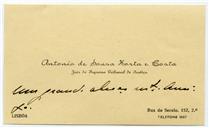 Antonio de Sousa Horta e Costa
Juiz do Supremo Tribunal de Justiça
um grande abraço mt. ami-
go
Rua do Seculo, 152, 2.º
LISBOA
TELEFONE